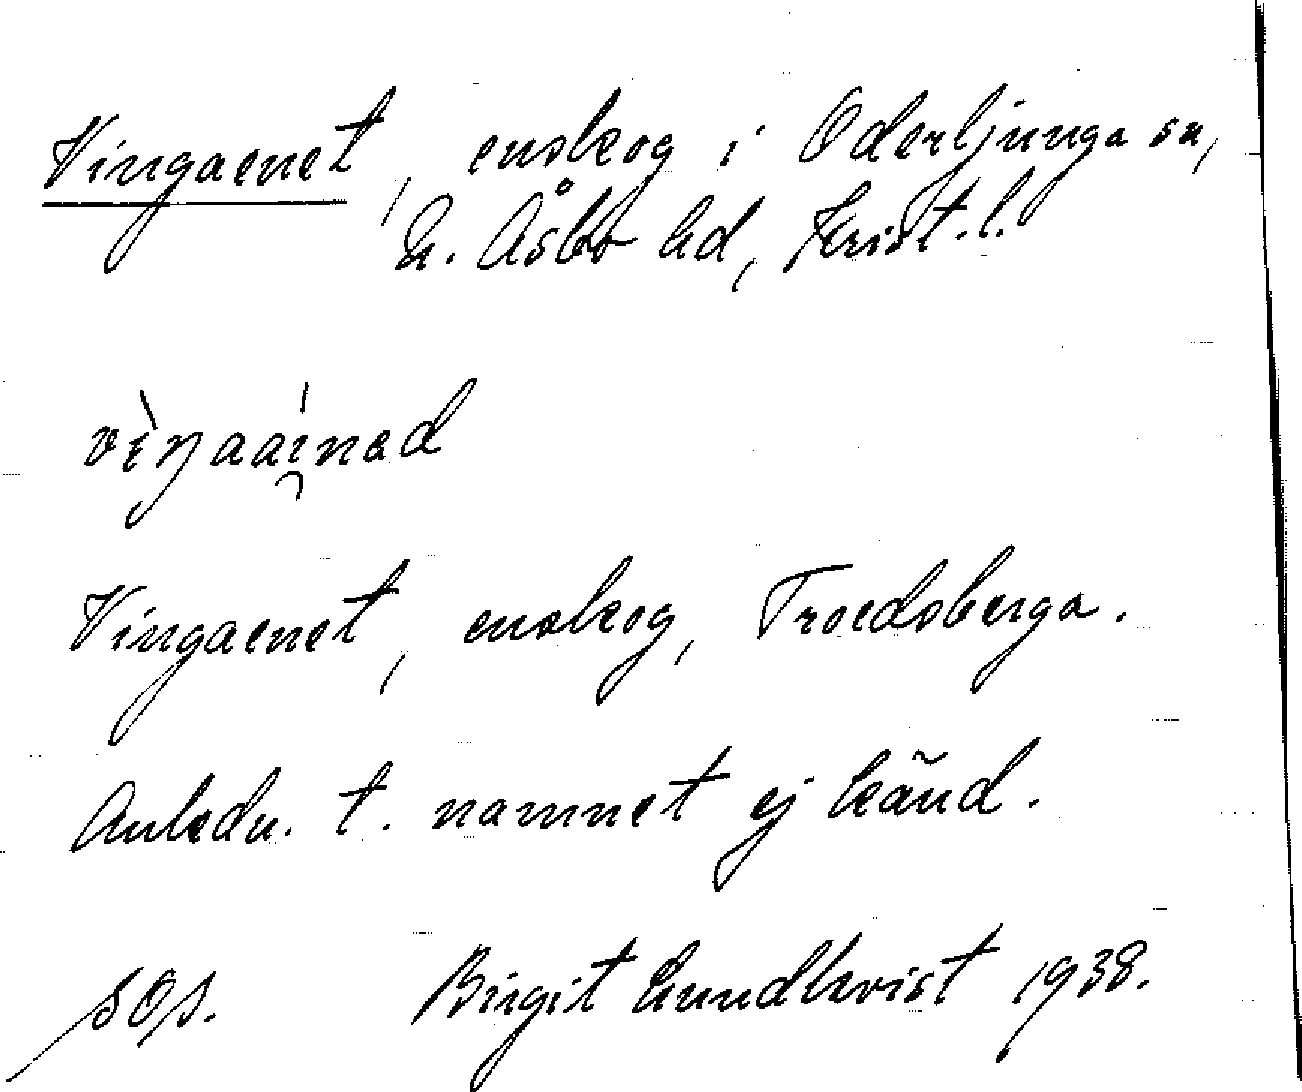 Vingaenet, enskog i Oderljunga sn,
N. Åsbo hd, Krist. l.
vìŋaaínəd
Vingaenet, enskog, Troedsberga.
Anledn. t. namnet ej känd.
SOA. Birgit Lundkvist 1938.